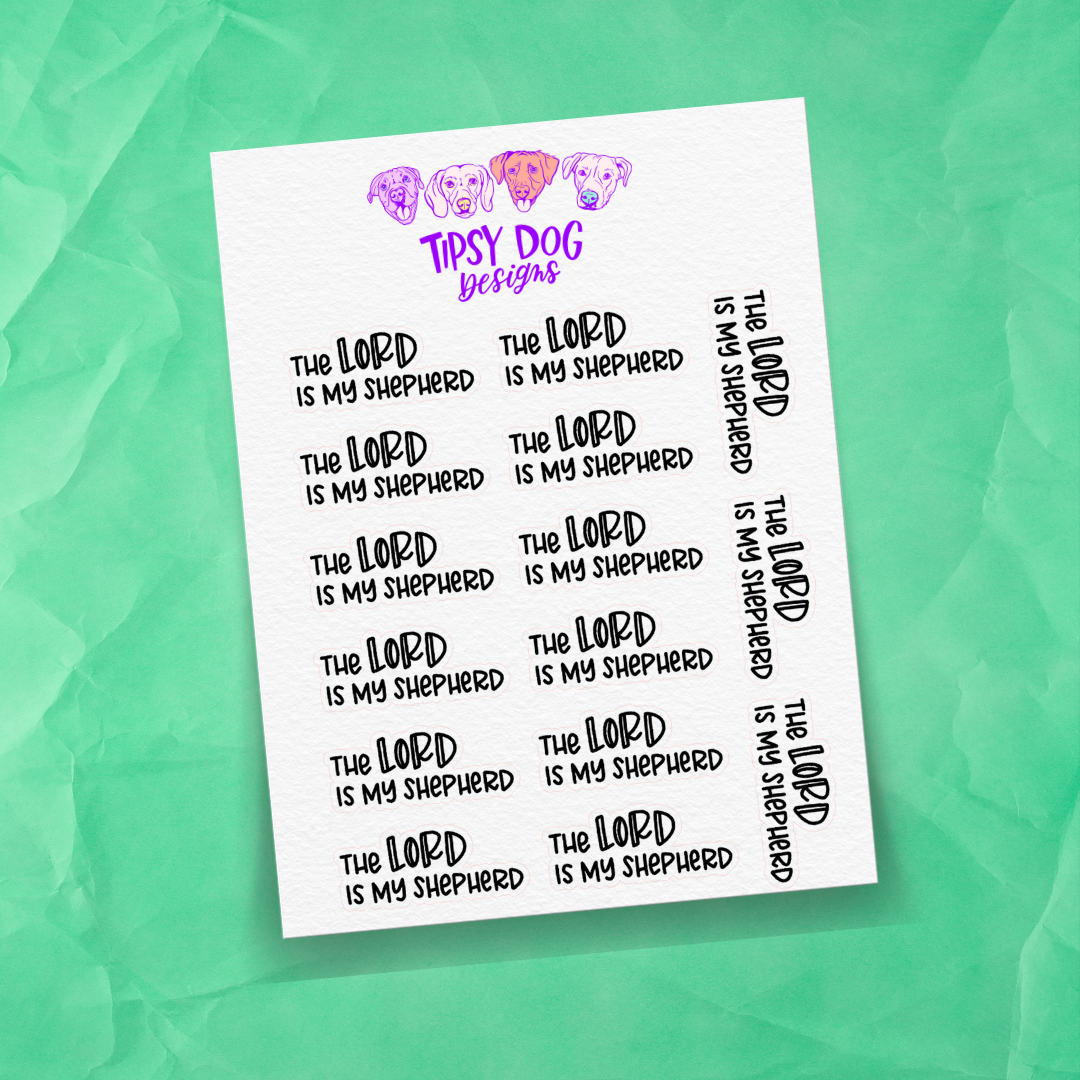 TIPSY DOG
Designs
THE LORD
IS MY SHEPHERD
THE LORD
IS MY SHEPHERD
THE LORD
IS MY SHEPHERD
THE LORD
IS MY SHEPHERD
THE LORD
IS MY SHEPHERD
THE LORD
IS MY SHEPHERD
THE LORD
IS MY SHEPHERD
THE LORD
IS MY SHEPHERD
THE LORD
IS MY SHEPHERD
THE LORD
IS MY SHEPHERD
THE LORD
IS MY SHEPHERD
THE LORD
IS MY SHEPHERD
THE LORD
IS MY SHEPHERD
THE LORD
IS MY SHEPHERD
THE LORD
IS MY SHEPHERD